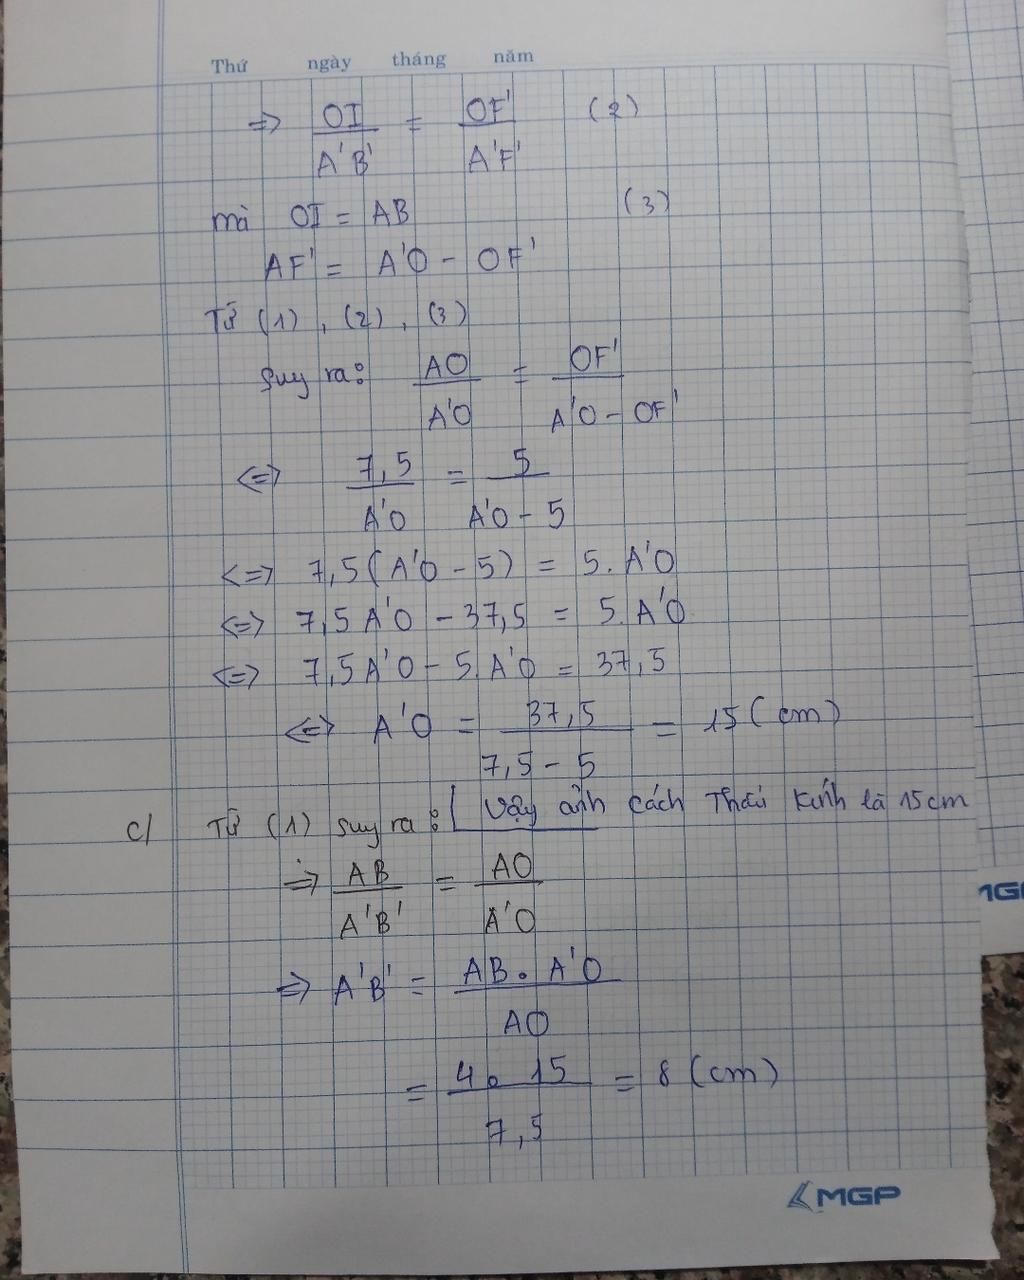 Thứ ngày tháng năm
=> OI / A'B' = OF' / A'F' (2)
mà OI = AB (3)
AF' = A'O - OF'
Từ (1), (2), (3)
suy ra: AO / A'O = OF' / A'O - OF'
<=> 7,5 / A'O = 5 / A'O - 5
<=> 7,5(A'O - 5) = 5. A'O
<=> 7,5 A'O - 37,5 = 5. A'O
<=> 7,5A'O - 5. A'O = 37,5
<=> A'O = 37,5 / 7,5 - 5 = 15 (cm)
Vậy ảnh cách Thấu kính là 15cm
c/ Từ (1) suy ra:
=> AB / A'B' = AO / A'O
=> A'B' = AB . A'O / AO
= 4 . 15 / 7,5 = 8 (cm)
MGP
MG